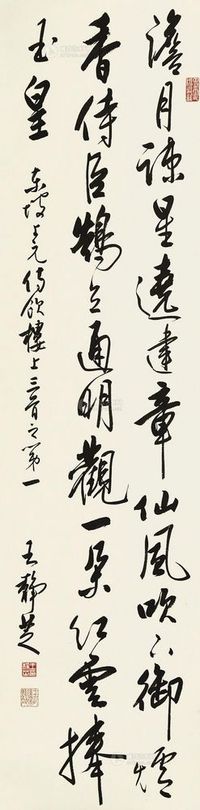 澹月疎星遶建章仙風吹下御爐
香侍臣鵠立通明觀一朵紅雲捧
玉皇
東坡上元侍飲樓上三首之第一
王靜芝